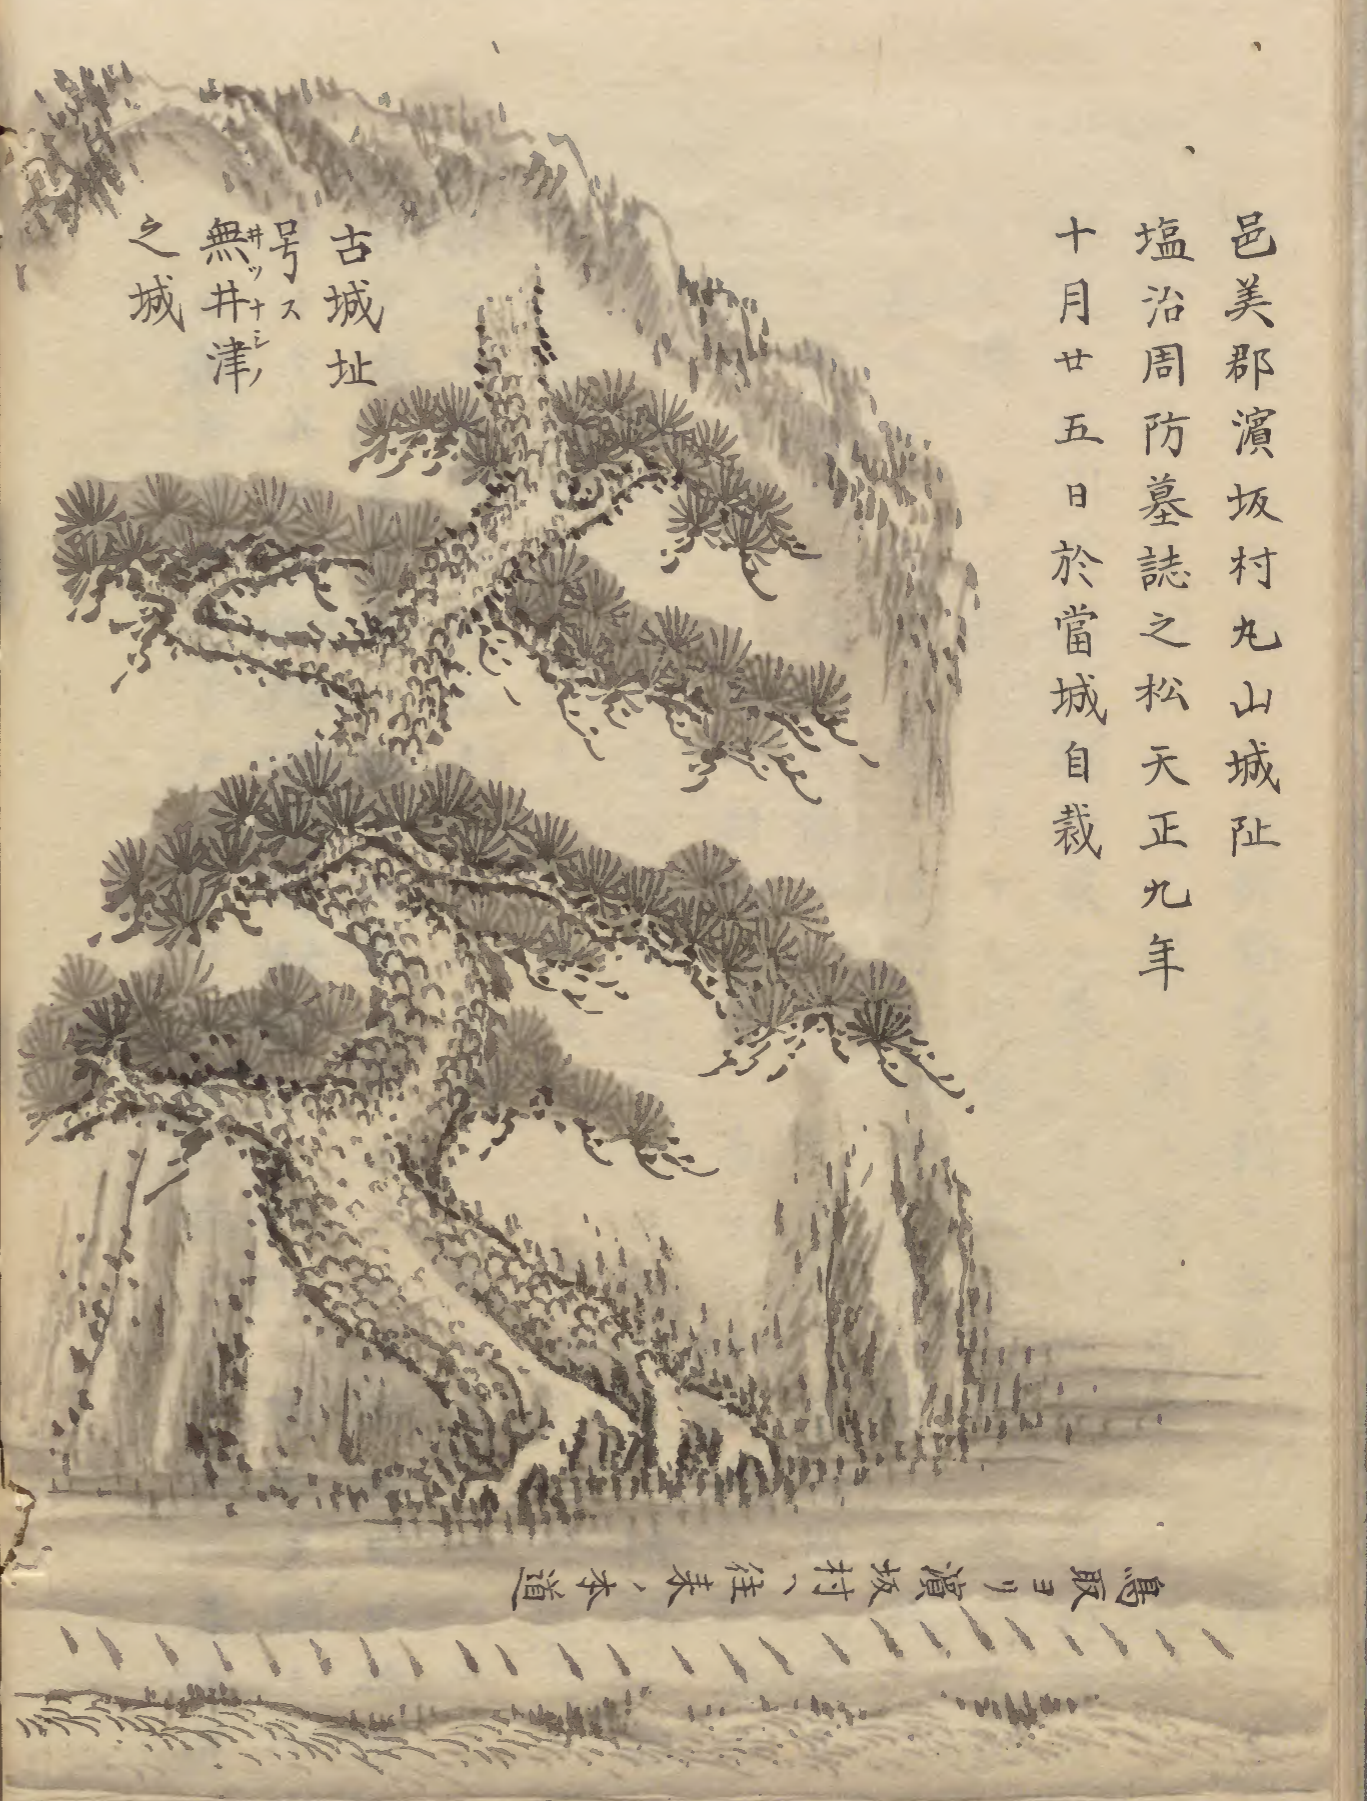 邑美郡濱坂村丸山城阯
塩治周防墓誌之松天正九年
十月廿五日於當城自裁
古城址
号ス
無井津
井ツナシノ
之城
鳥取ヨリ濱坂村ヘ往来ノ本道